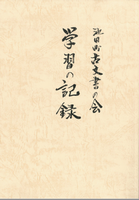 池田町古文書の会
学習の記録